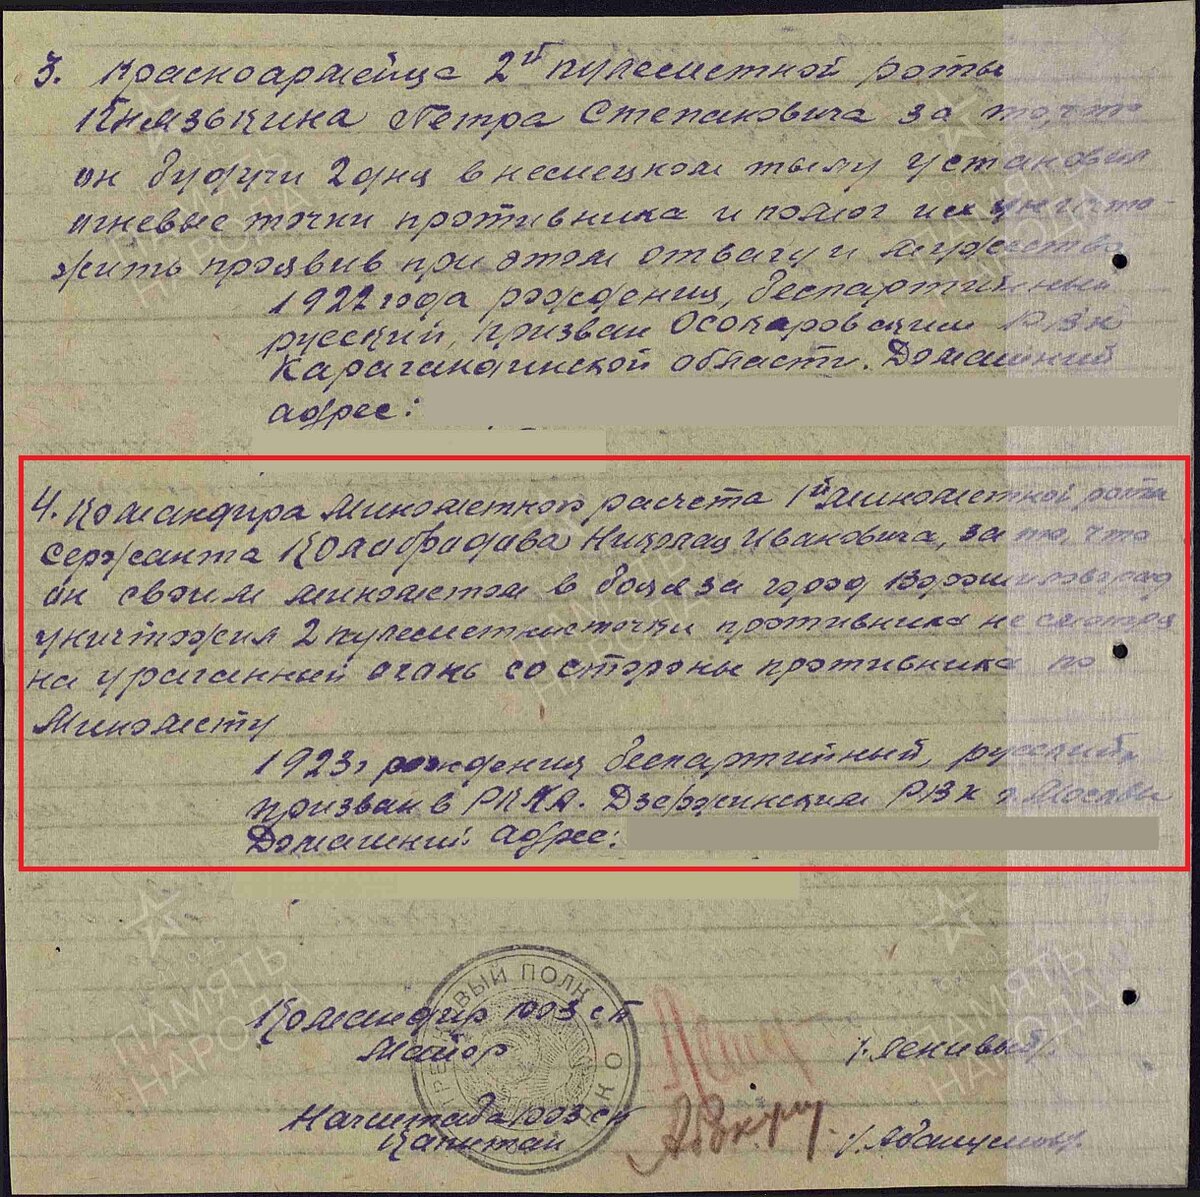 3. Красноармейца 2й пулеметной роты
Князькина Петра Степановича за то, что
он будучи 2 дня в немецком тылу установил
огневые точки противника и помог их уничто-
жить проявив при этом отвагу и мужество
1922 года рождения, беспартийный
русский, призван Осокаровским РВК
Карагандинской области. Домашний
адрес:
4. Командира минометного расчета 1й минометной роты
Сержанта Николая Ивановича, за то, что
он своим минометом в боях за город Ворошиловград
уничтожил 2 пулеметные точки противника не смотря
на ураганный огань со стороны противника по
Миномету
1923г рождения беспартийный, русский,
призван в РККА. Дзержинским РВК г. Москвы
Домашний адрес:
Командир 1003 сп
Майор /Ленивый/
Начштаба 1003 сп
Капитан
ПОЛК
ПАМЯТЬ
НАРОДА
ПАМЯТЬ
НАРОДА